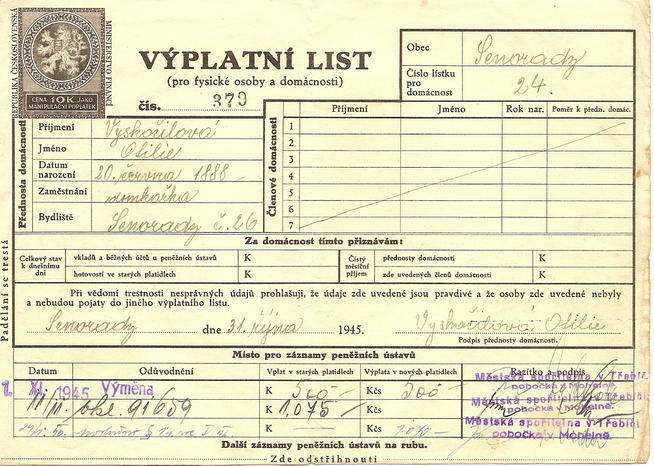 REPUBLIKA ČESKOSLOVENSKÁ
MINISTERSTVO FINANCÍ
CENA 10K JAKO
MANIPULAČNÍ POPLATEK
VÝPLATNÍ LIST
(pro fysické osoby a domácnosti)
čís. 379
Obec Senorady
Číslo lístku pro domácnost 24.
Přednosta domácnosti
Příjmení Vyskočilová
Jméno Otilie
Datum narození 20. června 1888
Zaměstnání domkařka
Bydliště Senorady č. 26
Členové domácnosti
Příjmení Jméno Rok nar. Poměr k předn. domác.
1
2
3
4
5
6
7
Za domácnost tímto přiznávám:
Celkový stav k dnešnímu dni
vkladů a běžných účtů u peněžních ústavů K
hotovostí ve starých platidlech K
Čistý měsíční příjem
přednosty domácnosti K
zde uvedených členů domácnosti K
Padělání se trestá
Při vědomí trestnosti nesprávných údajů prohlašuji, že údaje zde uvedené jsou pravdivé a že osoby zde uvedené nebyly
a nebudou pojaty do jiného výplatního listu.
Senorady dne 31. října 1945. Vyskočilová Otilie
Podpis přednosty domácnosti.
Místo pro záznamy peněžních ústavů
Datum Odůvodnění Vplat v starých platidlech Výplata v nových platidl. Razítko a podpis
1. XI. 1945 Výměna K 500 — Kčs 500 —
Městská spořitelna v Třebíči
pobočka v Mohelně.
K 1.075 — Kčs
Městská spořitelna v Třebíči
pobočka v Mohelně.
K Kčs
Městská spořitelna v Třebíči
pobočka v Mohelně.
Další záznamy peněžních ústavů na rubu.
Zde odstřihnouti